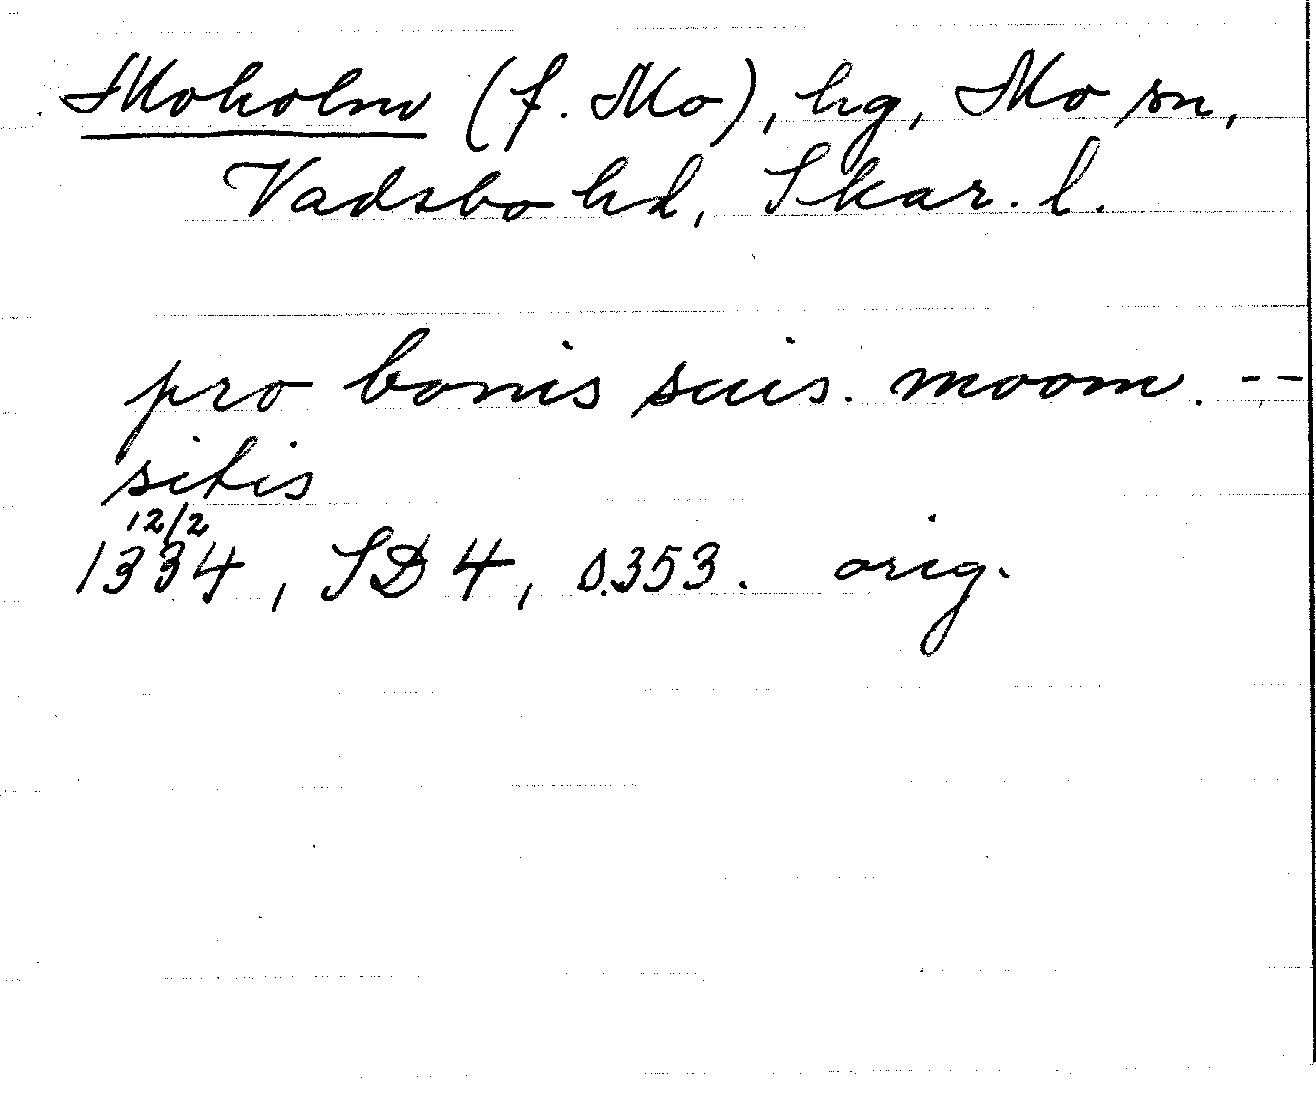 Moholm (f. Mo), hg, Mo sn,
Vadsbo hd, Skar. l.
pro bonis suis. moom. --
sitis
12/2
1334, SD 4, s.353. orig.